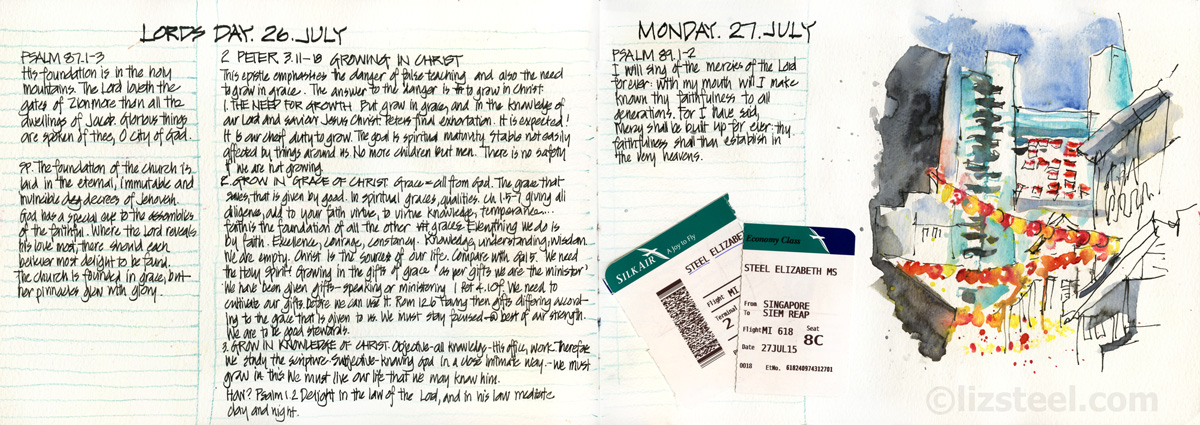 LORDS DAY. 26. JULY
PSALM 87.1-3
His foundation is in the holy
mountains. The Lord loveth the
gates of Zion more than all the
dwellings of Jacob. Glorious things
are spoken of thee, O city of God.
SP. The foundation of the church is
laid in the eternal, immutable and
invincible decrees of Jehovah.
God has a special eye to the assemblies
of the faithful. Where the Lord reveals
his love most, there should each
believer most delight to be found.
The church is founded in grace, but
her pinnacles glow with glory.
2 PETER 3.11-18 GROWING IN CHRIST
This epistle emphasises the danger of false teaching and also the need
to grow in grace. The answer to the danger is to grow in Christ.
1. THE NEED FOR GROWTH But grow in grace, and in the knowledge of
our Lord and saviour Jesus Christ. Peters final exhortation. It is expected!
It is our chief duty to grow. The goal is spiritual maturity. Stable not easily
affected by things around us. No more children but men. There is no safety
if we are not growing.
2. GROW IN GRACE OF CHRIST Grace = all from God. The grace that
saves, that is given by good. In spiritual graces, qualities. ch 1.5-7 giving all
diligence, add to your faith virtue, to virtue knowledge, temperance...
faith is the foundation of all the other graces. Everything we do is
by faith. Excellence, courage, constancy. Knowledge, understanding, wisdom.
We are empty. Christ is the source of our life. Compare with Gal 5. We need
the Holy Spirit! Growing in the gifts of grace! as per gifts we are the minister!
We have been given gifts - speaking or ministering 1 Pet 4.10f. We need to
cultivate our gifts before we can use it. Rom 12.6 Having then gifts differing accord-
ing to the grace that is given to us. We must stay focused - best of our strength.
We are to be good stewards.
3. GROW IN KNOWLEDGE OF CHRIST. Objective - all knowledge - His office, work. Therefore
we study the scripture. Subjective - knowing God in a close intimate way - we must
grow in this We must live our life that we may know him.
How? Psalm 1.2 Delight in the law of the Lord, and in his law meditate
day and night.
MONDAY. 27. JULY
PSALM 89.1-2
I will sing of the mercies of the Lord
forever: with my mouth will I make
known thy faithfulness to all
generations. For I have said,
Mercy shall be built up for ever: thy
faithfulness shalt thou establish in
the very heavens.
SILKAIR A Joy to Fly
STEEL ELIZABE
Flight MI
Terminal
2
Economy Class
STEEL ELIZABETH MS
From SINGAPORE
To SIEM REAP
Flight MI 618 Seat
8C
Date 27JUL15
0018 EtNo. 618240974312701
©lizsteel.com